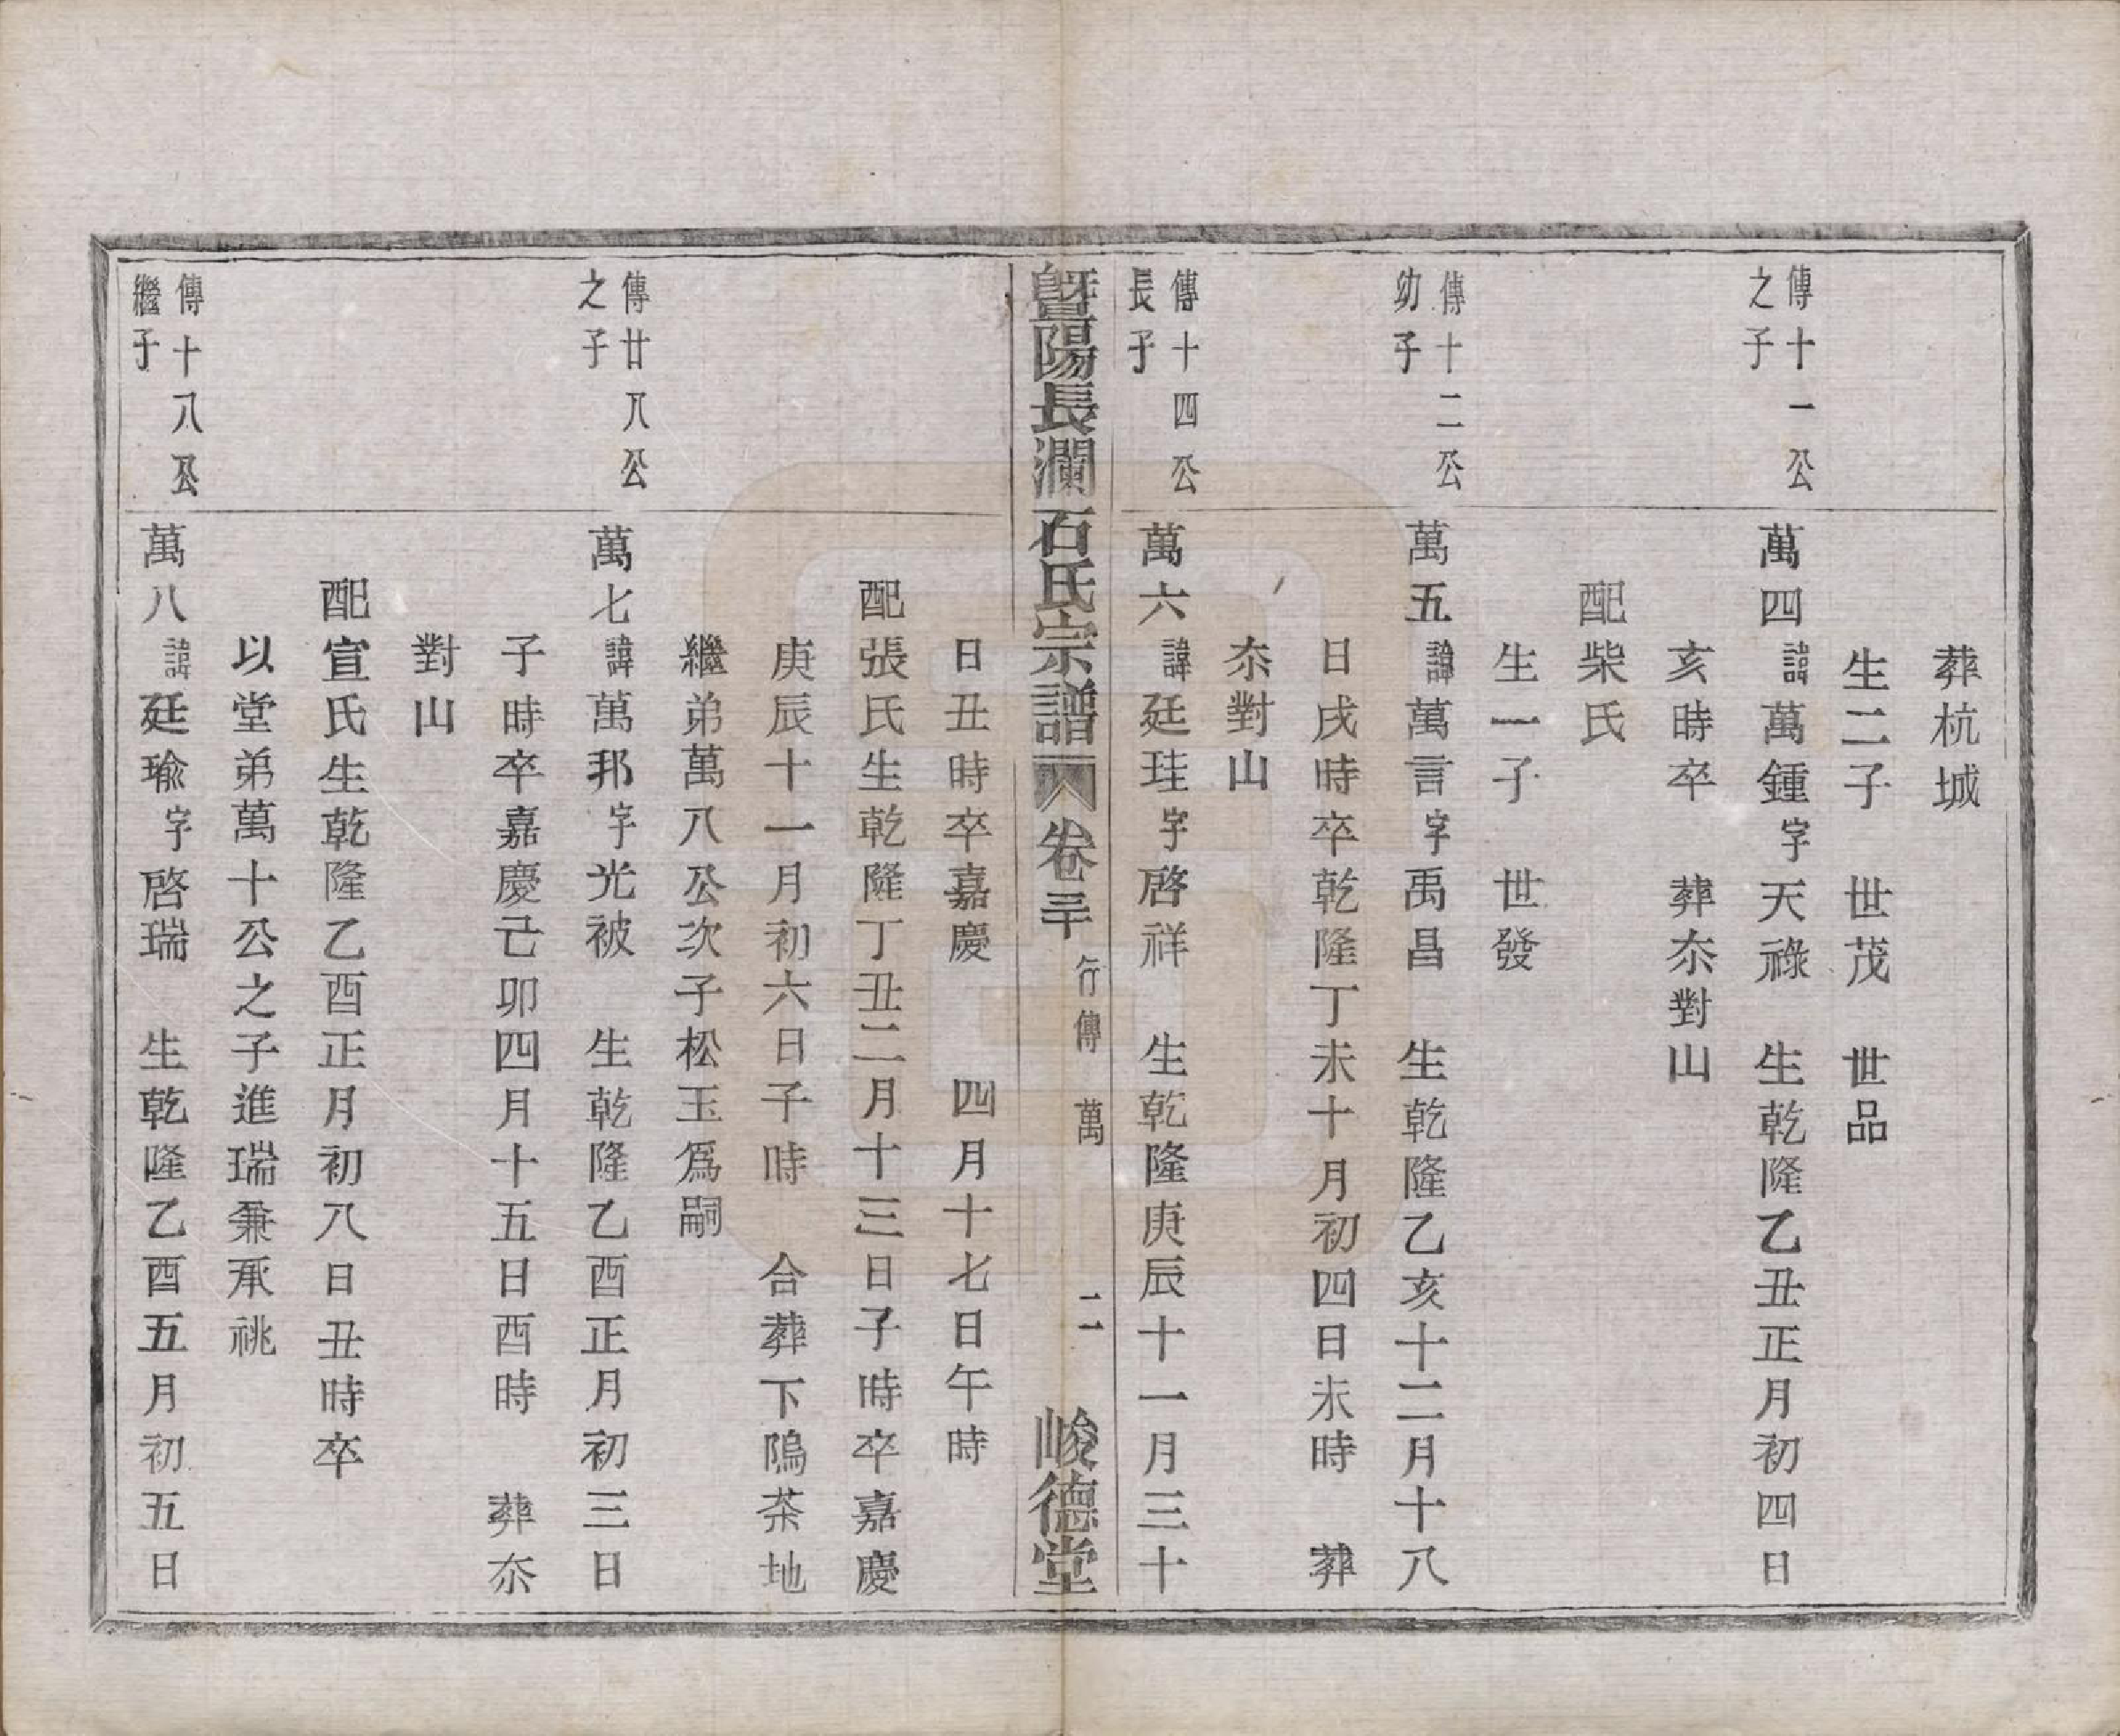 葬杭城
生二子　世茂　世品
傳十一公
之子
萬四諱萬鍾字天祿　生乾隆乙丑正月初四日
亥時卒　葬夵對山
配柴氏
生一子　世發
傳十二公
幼子
萬五諱萬言字禹昌　生乾隆乙亥十二月十八
日戌時卒乾隆丁未十月初四日未時　葬
夵對山
傳十四公
長子
萬六諱廷珪字啓祥　生乾隆庚辰十一月三十
暨陽長瀾石氏宗譜
卷三十
行傳　萬
二
峻德堂
日丑時卒嘉慶　　四月十七日午時
配張氏生乾隆丁丑二月十三日子時卒嘉慶
庚辰十一月初六日子時　合葬下隖茶地
繼弟萬八公次子松玉爲嗣
傳廿八公
之子
萬七諱萬邦字光被　生乾隆乙酉正月初三日
子時卒嘉慶己卯四月十五日酉時　葬夵
對山
配宣氏生乾隆乙酉正月初八日丑時卒
以堂弟萬十公之子進瑞兼承祧
傳十八公
繼子
萬八諱廷瑜字啓瑞　生乾隆乙酉五月初五日